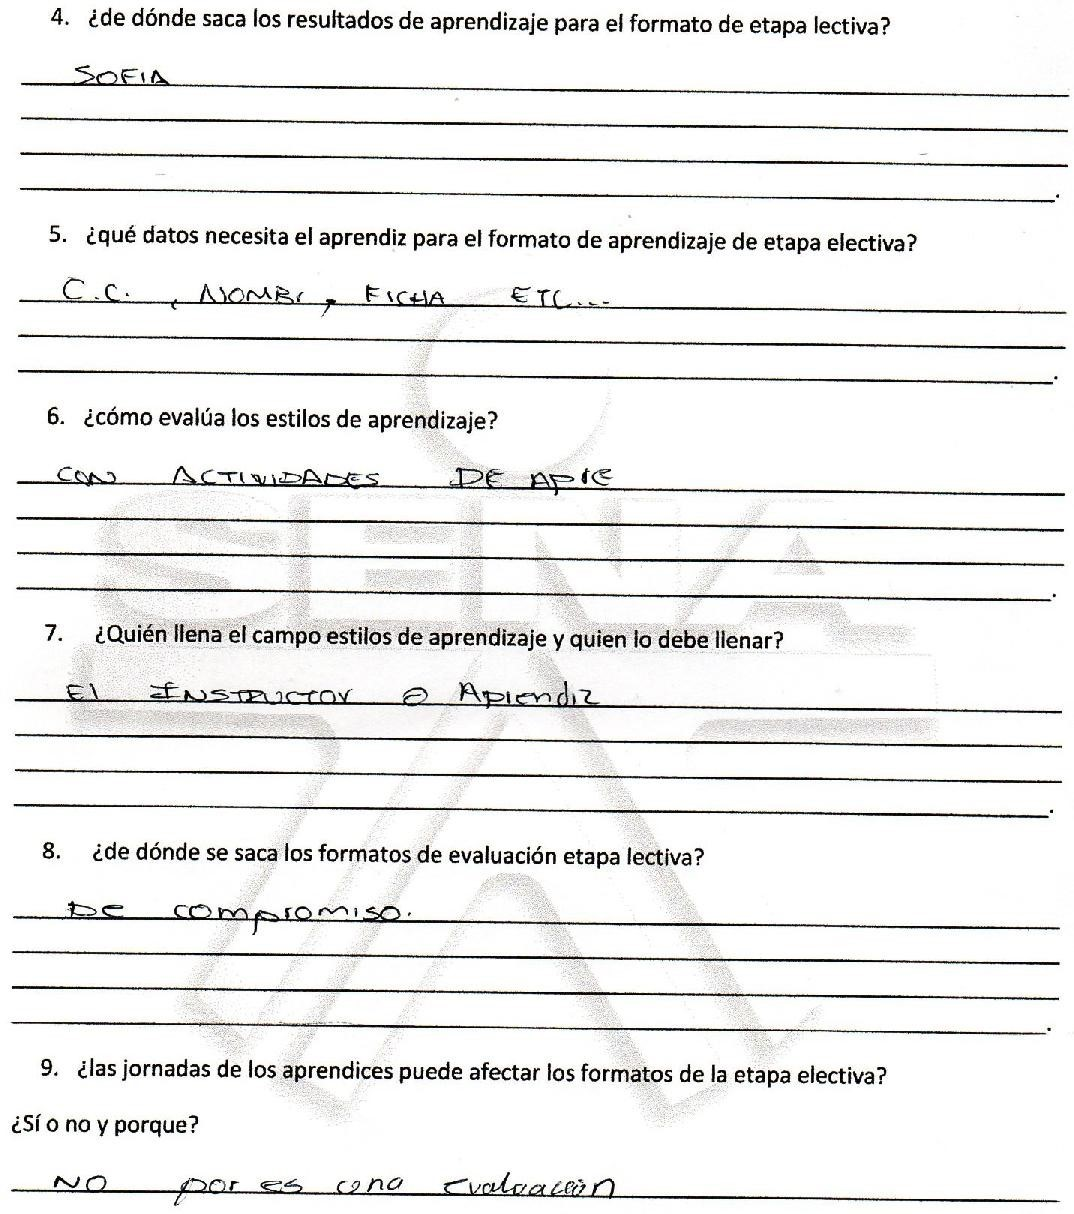 4. ¿de dónde saca los resultados de aprendizaje para el formato de etapa lectiva?
SOFIA
5. ¿qué datos necesita el aprendiz para el formato de aprendizaje de etapa electiva?
C.C. , NOMBr, FICHA ETC...
6. ¿cómo evalúa los estilos de aprendizaje?
CON ACTIVIDADES DE APre
SENA
7. ¿Quién llena el campo estilos de aprendizaje y quien lo debe llenar?
El INSTRUCTOr o Aprendiz
8. ¿de dónde se saca los formatos de evaluación etapa lectiva?
De compromiso.
9. ¿las jornadas de los aprendices puede afectar los formatos de la etapa electiva?
¿Sí o no y porque?
NO por es una evaluación